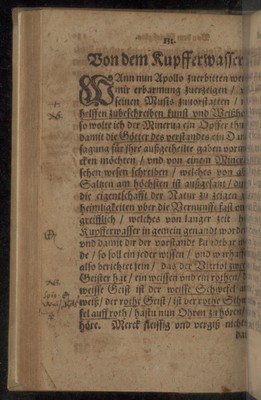 III.
Von dem Kupfferwasser
WAnn nun Apollo zuerbitten wer
mir erbarmung zuerzeigen /
seinen Musis zuuorstatten /
helffen zubeschreiben kunst vnd Weißhe
so wolte ich der Minerua ein Opffer thu
damit die Götter des verstandes ein Da
sagung für jhre außgetheilte gaben vorm
cken möchten / vnd von einem Miner
schen wesen schreiben / welches von al
Saltzen am höchsten ist außgesatzt / du
die eigenschafft der Natur zu zeigen
heimligkeiten vber die Vernunfft fast vn
greifflich / welches von langer zeit he
Kupfferwasser in gemein genandt word
vnd damit dir der vorstandt kundtbar w
de / so soll ein jeder wissen / vnd warhafft
also berichtet sein / das der Vitriol zwe
Geister hat / ein weissen vnd ein rothen /
weisse Geist ist der weisse Schwefel a
weiß / der rothe Geist / ist der rothe Schw
fel auff roth / hastu nun Ohren zu hören
höre. Merck fleissig vnd vergiß nicht
dan